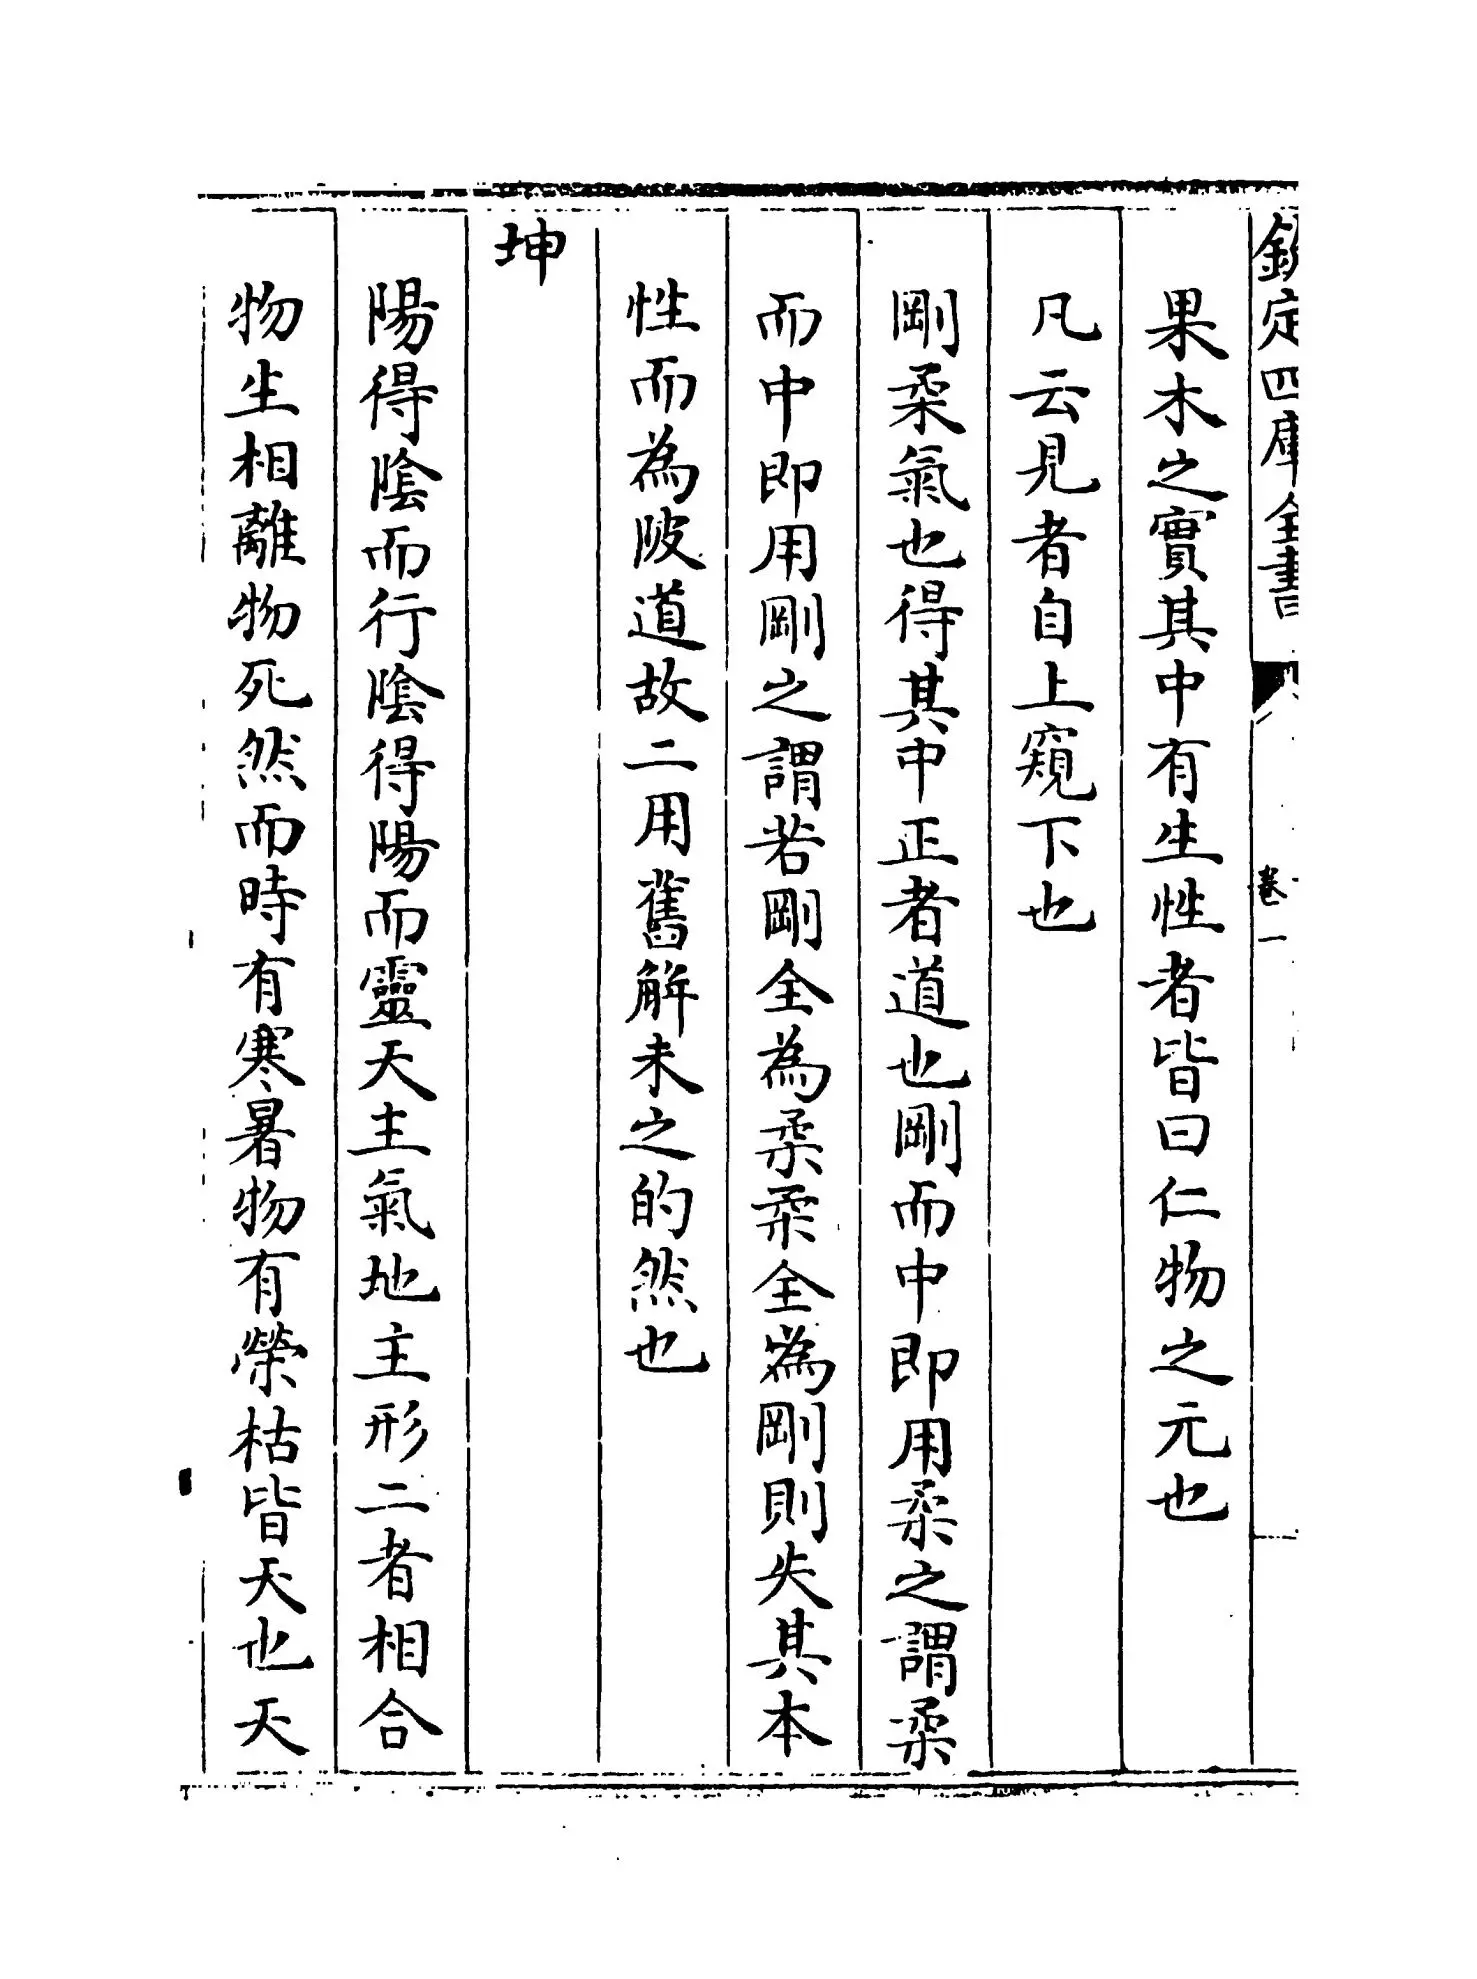 欽定四庫全書
卷一
果木之實其中有生性者皆曰仁物之元也
凡云見者自上窺下也
剛柔氣也得其中正者道也剛而中即用柔之謂柔
而中即用剛之謂若剛全為柔柔全為剛則失其本
性而為陂道故二用舊解未之的然也
坤
陽得陰而行陰得陽而靈天主氣地主形二者相合
物生相離物死然而時有寒暑物有榮枯皆天也天